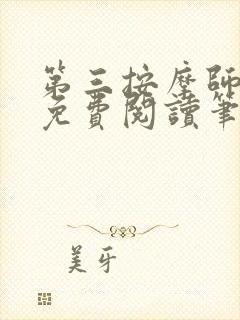 第三按摩師
免費閱讀筆
美牙